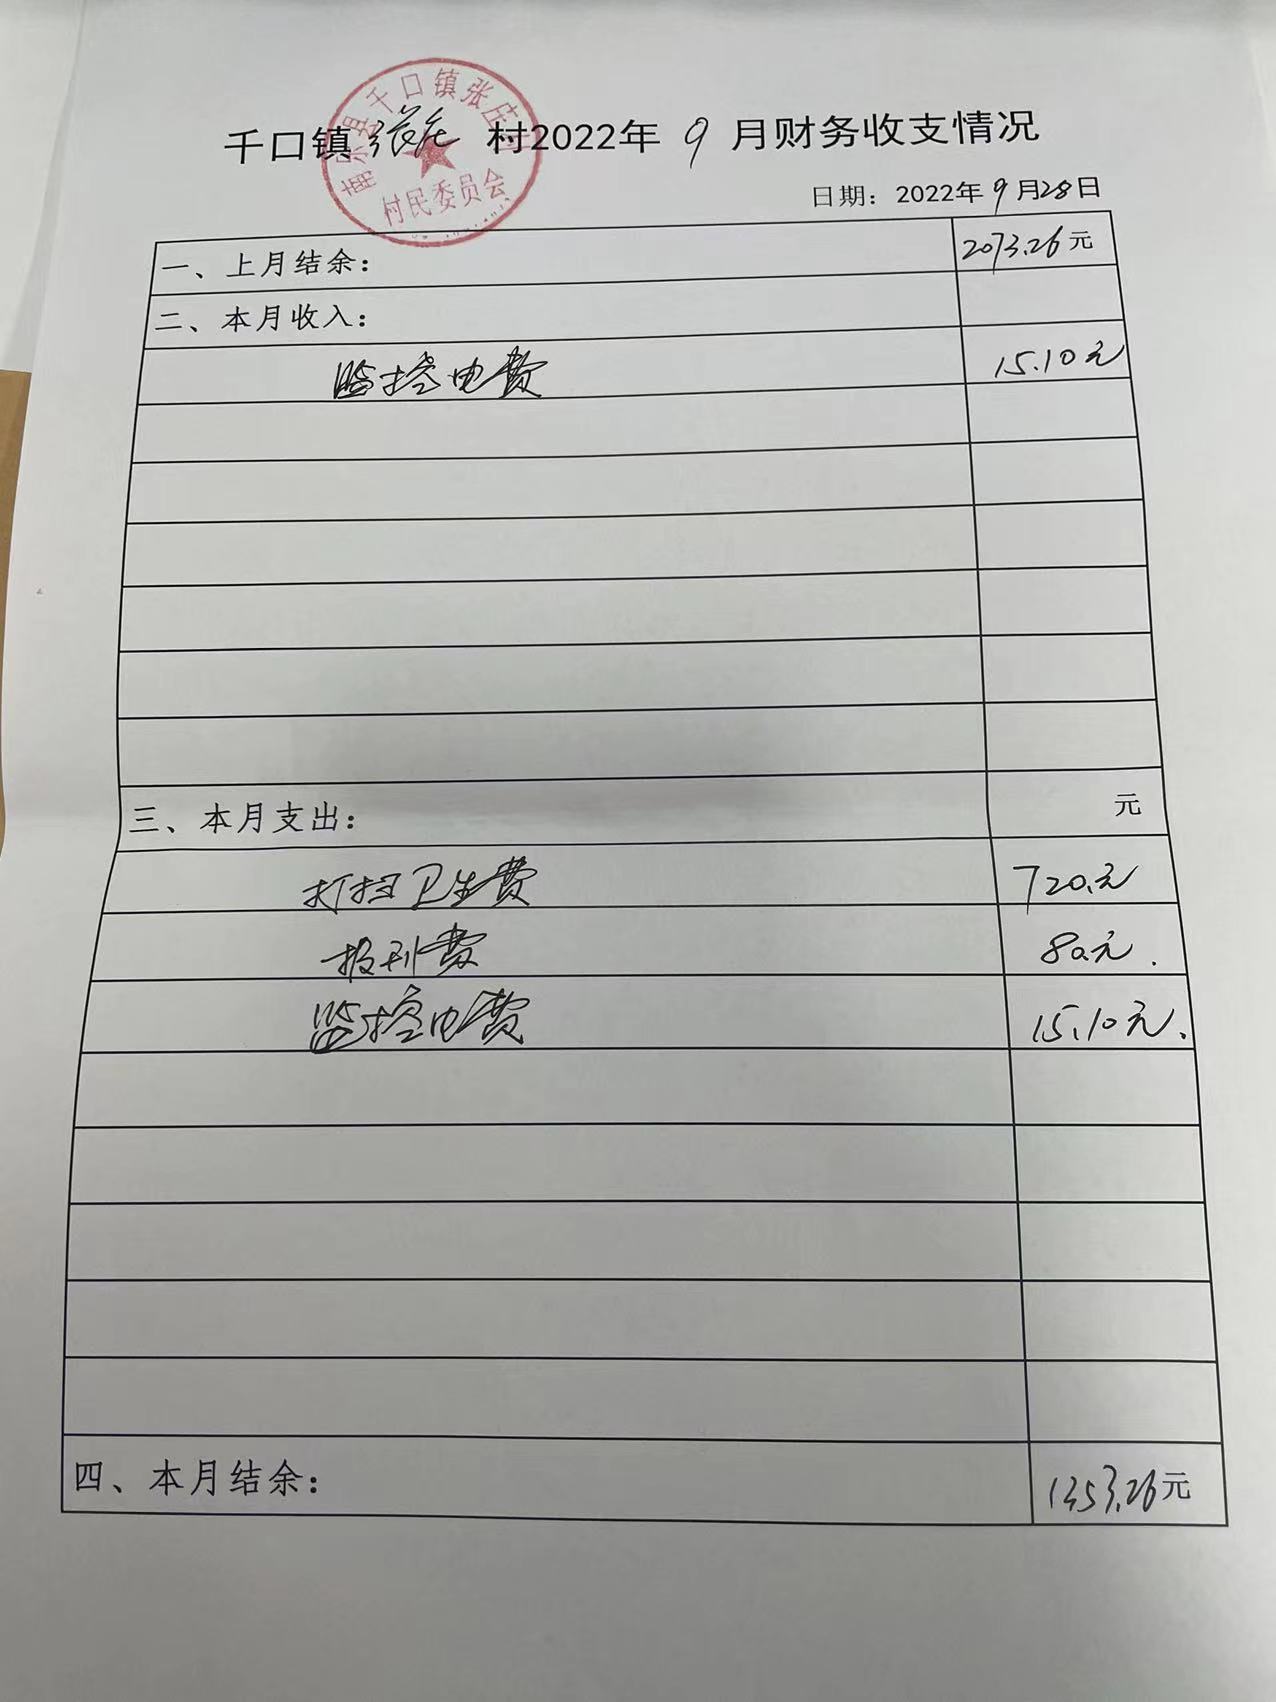 南乐县千口镇张庄村
村民委员会
千口镇张庄村2022年9月财务收支情况
日期：2022年9月28日
一、上月结余： 2073.26元
二、本月收入：
监控电费 15.10元
三、本月支出： 元
打扫卫生费 720.元
报刊费 80元.
监控电费 15.10元.
四、本月结余： 1353.26元